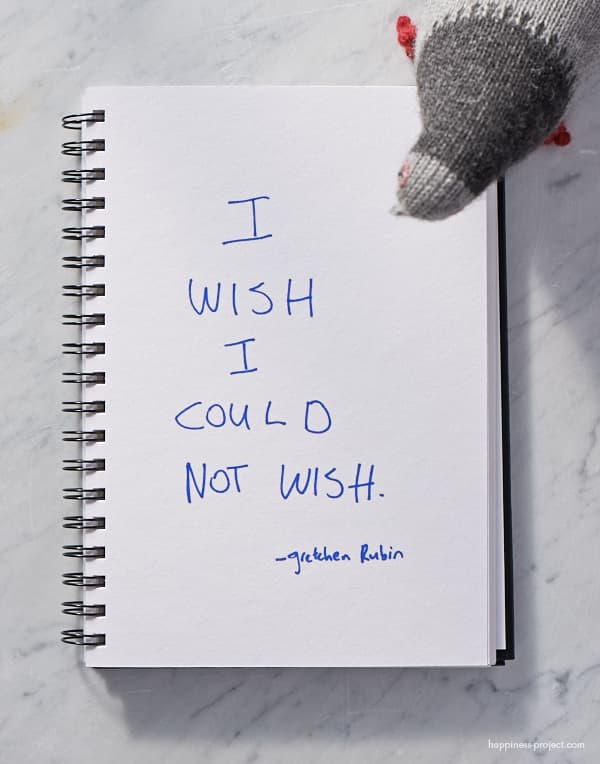 I
WISH
I
COULD
NOT WISH.
-gretchen Rubin
happiness-project.com